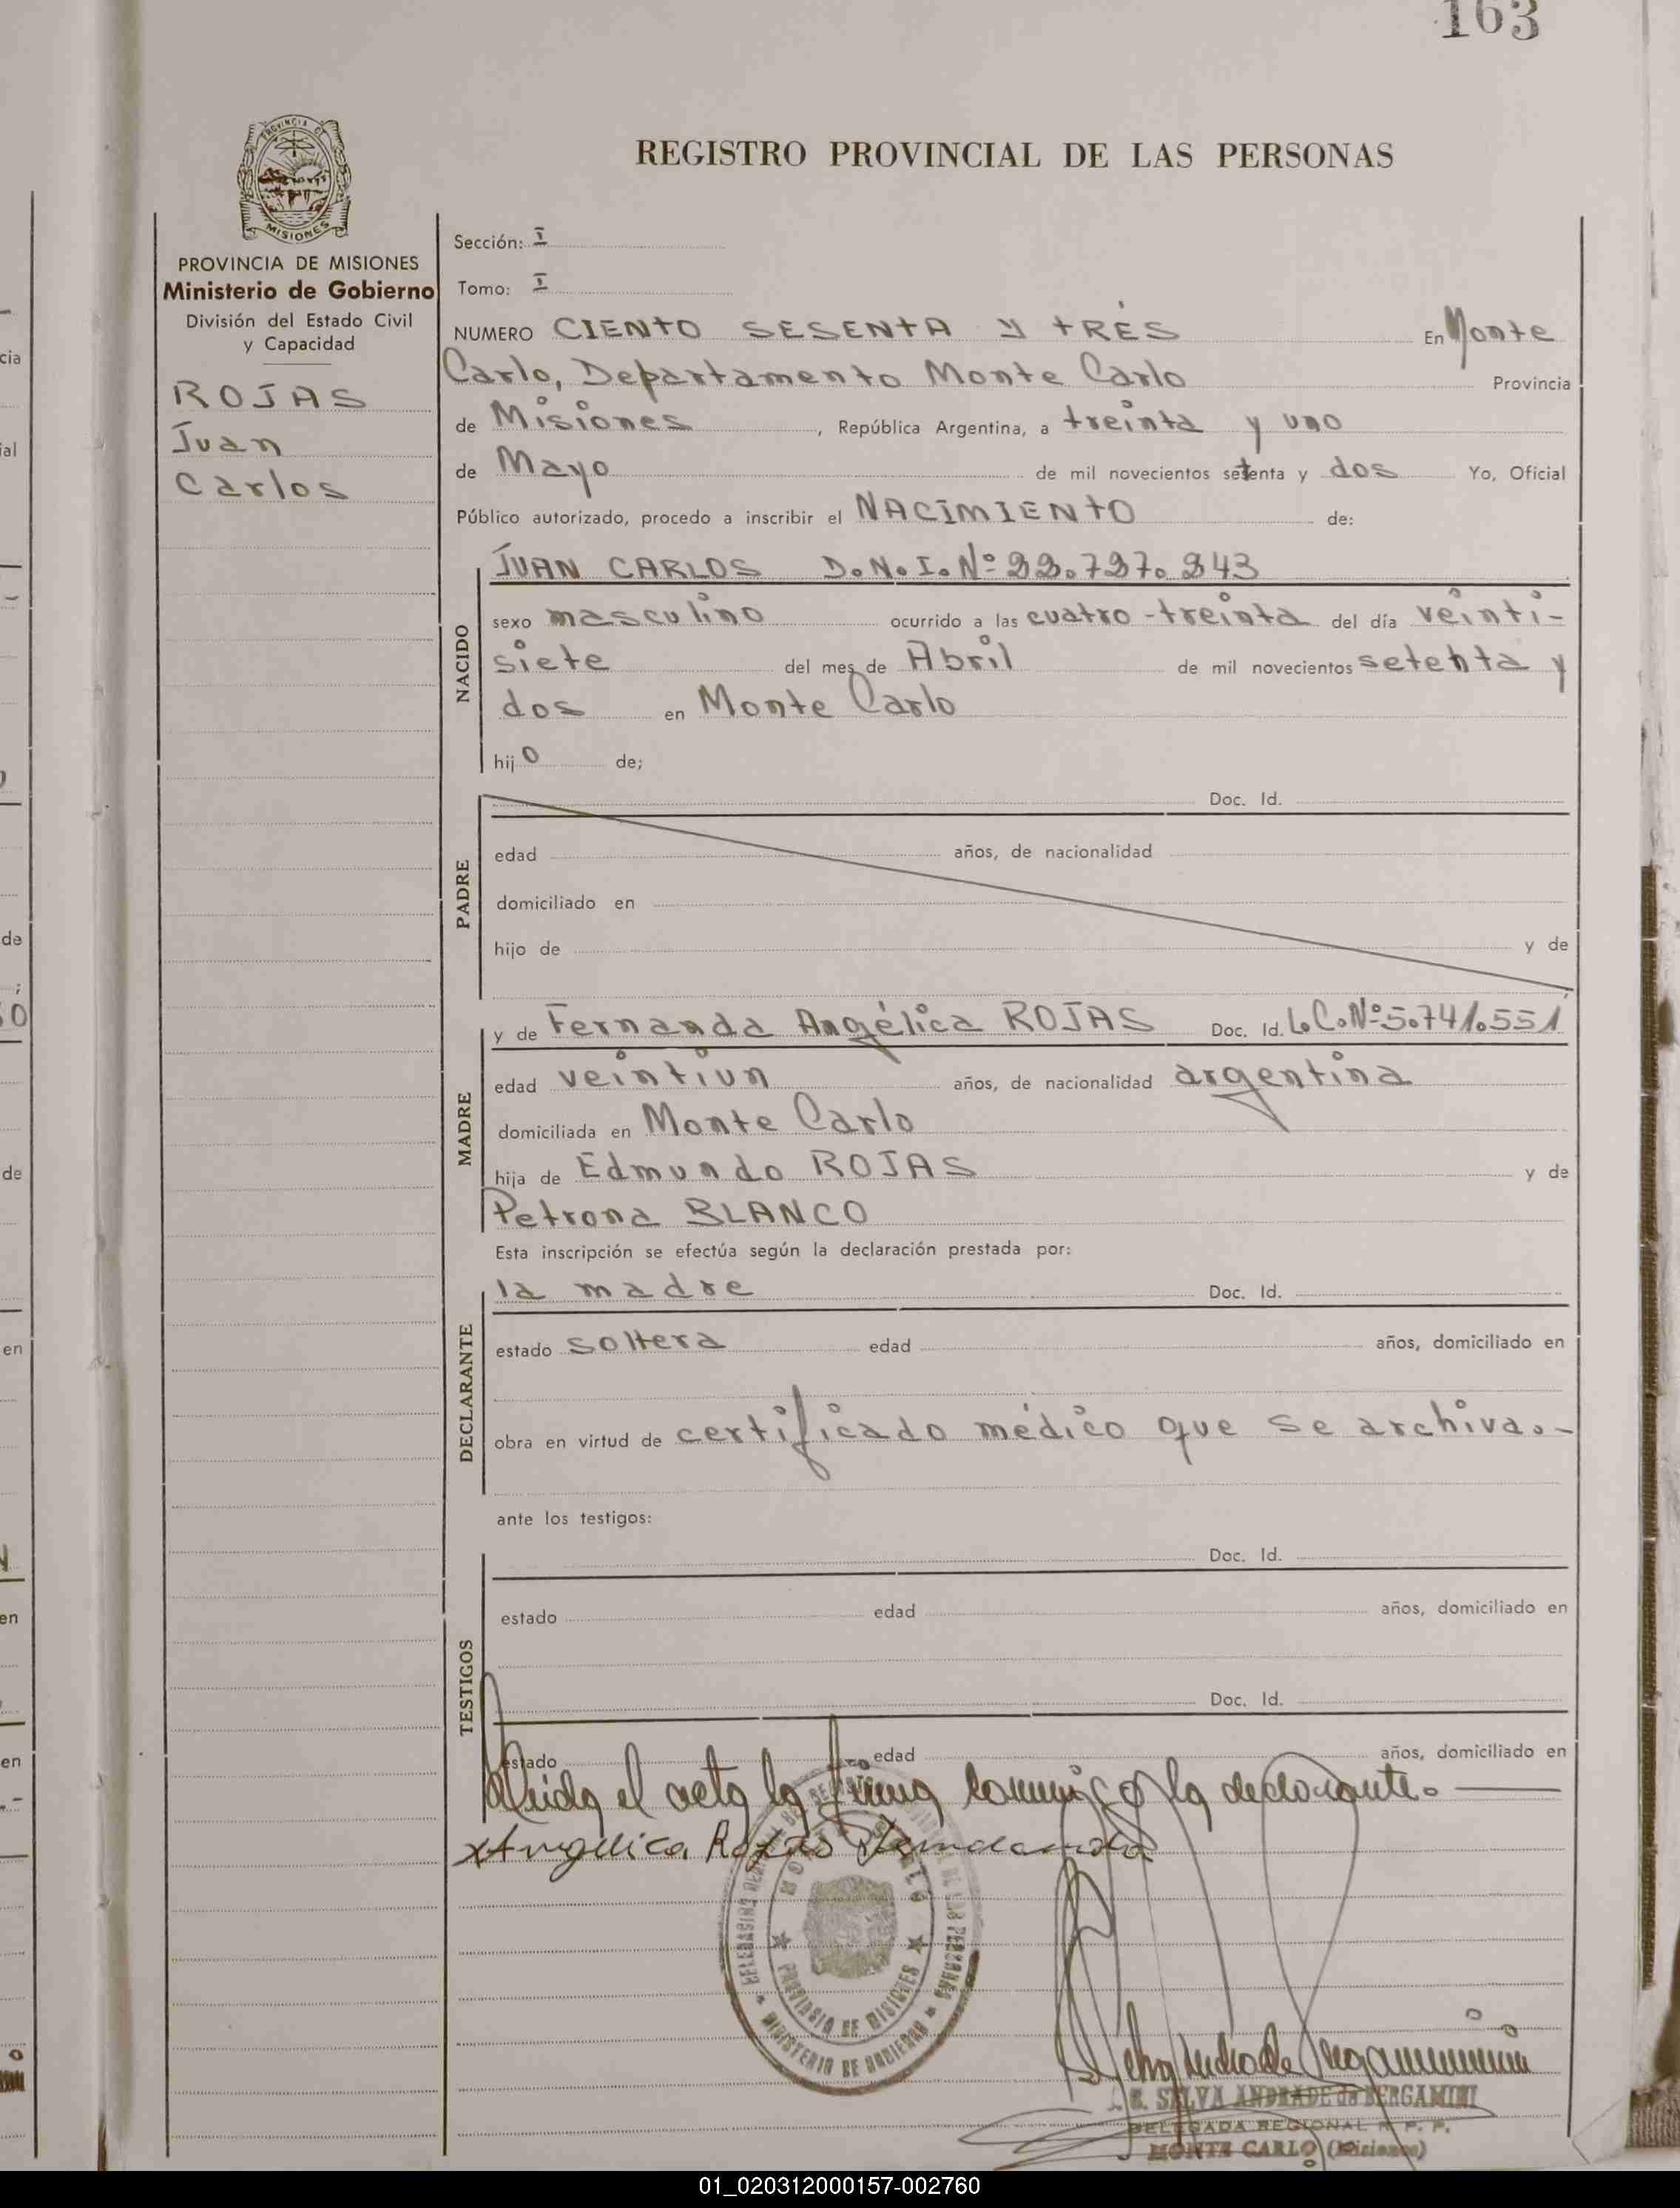 163
PROVINCIA DE
MISIONES
REGISTRO PROVINCIAL DE LAS PERSONAS
PROVINCIA DE MISIONES
Ministerio de Gobierno
División del Estado Civil
y Capacidad
ROJAS
Juan
Carlos
Sección: I
Tomo: I
NUMERO CIENTO SESENTA Y TRES En Monte
Carlo, Departamento Monte Carlo Provincia
de Misiones, República Argentina, a treinta y uno
de Mayo de mil novecientos setenta y dos Yo, Oficial
Público autorizado, procedo a inscribir el NACIMIENTO de:
NACIDO
JUAN CARLOS D.N.I.Nº
sexo masculino ocurrido a las cuatro-treinta del día veinti-
siete del mes de Abril de mil novecientos setenta y
dos en Monte Carlo
hijo de;
PADRE
Doc. Id.
edad años, de nacionalidad
domiciliado en
hijo de y de
MADRE
y de Fernanda Angélica ROJAS Doc. Id. L.C.Nº5.741.551
edad veintiun años, de nacionalidad argentina
domiciliada en Monte Carlo
hija de Edmundo ROJAS y de
Petrona BLANCO
Esta inscripción se efectúa según la declaración prestada por:
DECLARANTE
la madre Doc. Id.
estado soltera edad años, domiciliado en
obra en virtud de certificado médico que se archiva.-
ante los testigos:
TESTIGOS
Doc. Id.
estado edad años, domiciliado en
Doc. Id.
estado edad años, domiciliado en
Leida el acta la firma conmigo la declarante.
x Angelica Rojas Fernanda
PROVINCIA DE MISIONES
MINISTERIO DE GOBIERNO
SELVA ANDRADE de BERGAMINI
DELEGADA REGIONAL R. P. P.
MONTE CARLO (Misiones)
01_020312000157-002760